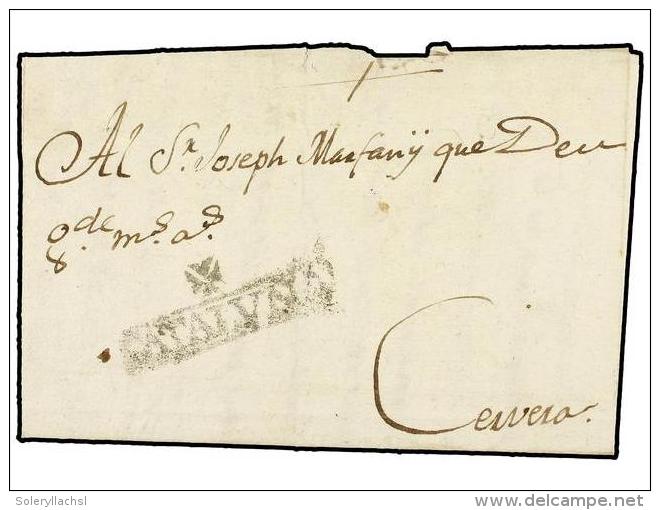 Al Sr. Joseph Marfañÿ que Deu
g.de ms. as.
CATALVÑA
Cervera.
Soleryllachsl
delcampe.net